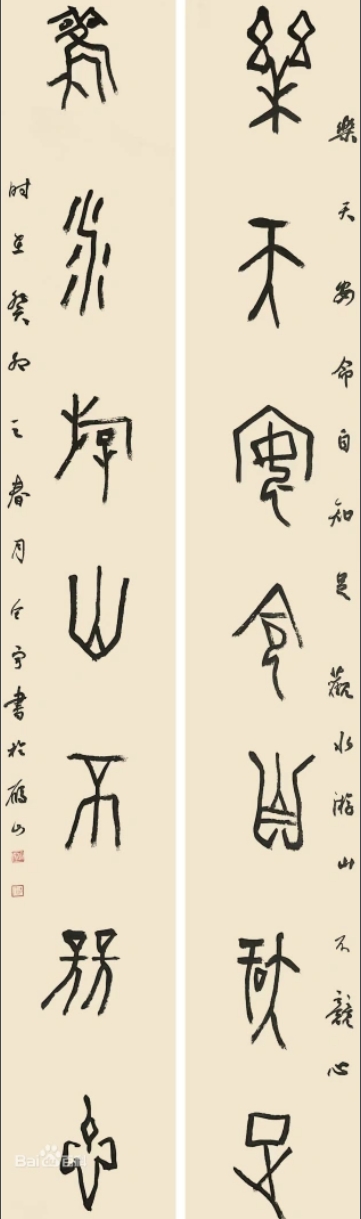 樂天安命自知足
觀水游山不競心
樂天安命自知足 觀水游山不競心
时在癸卯之春月全宁書於雁山
Baidu百科